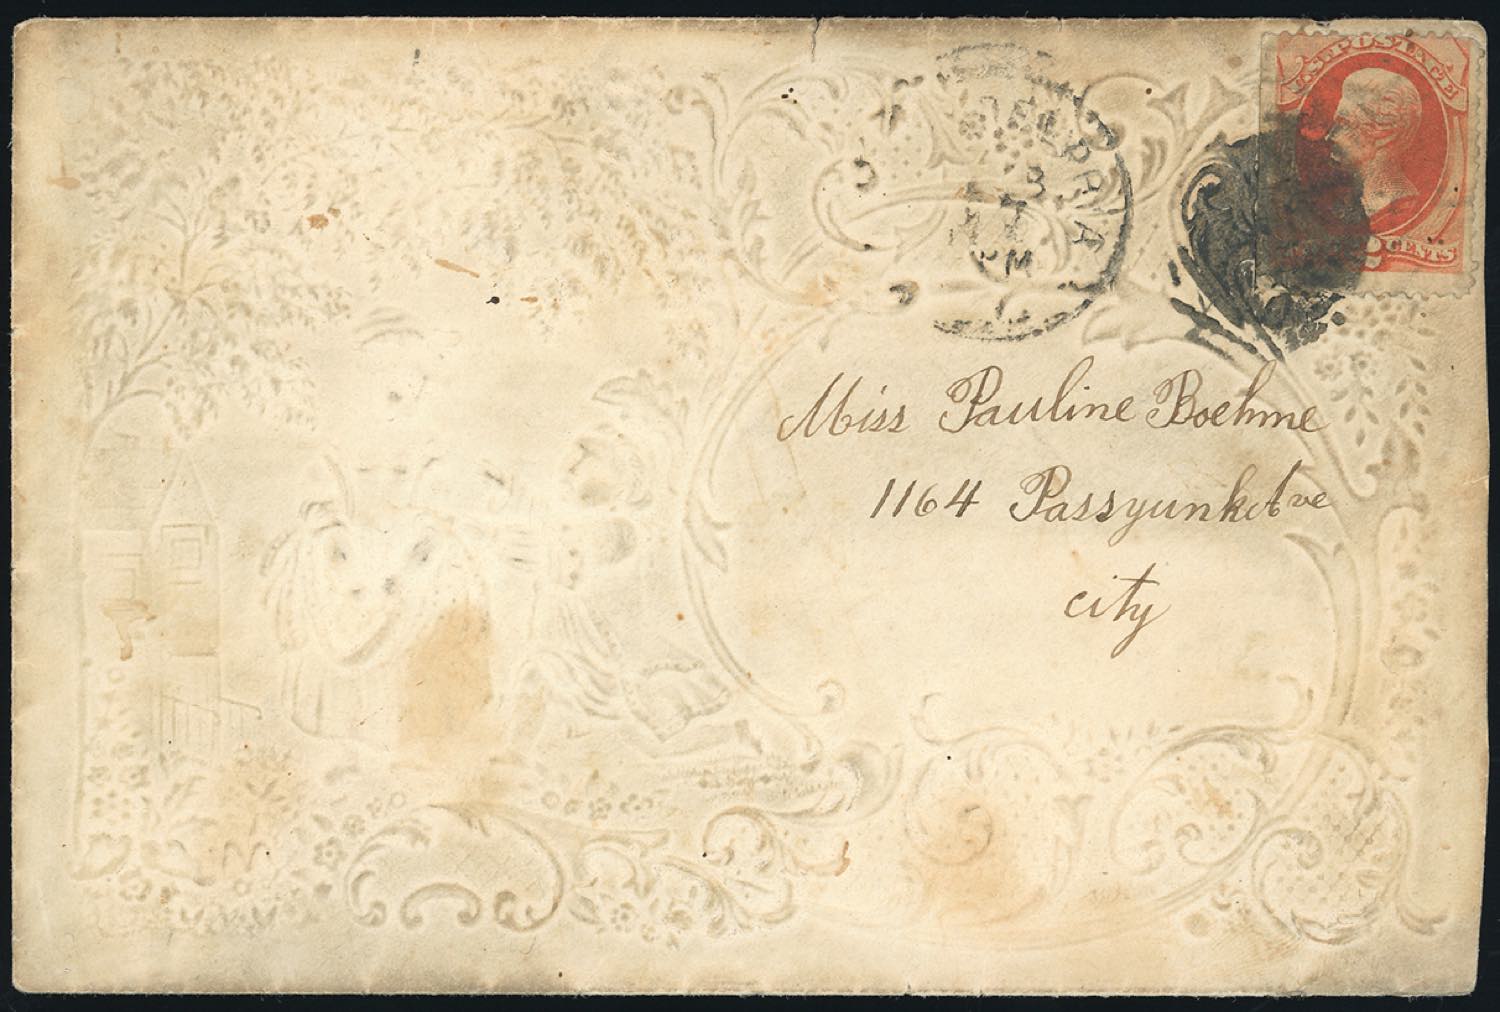 U.S. POSTAGE
2 CENTS
PM
Miss Pauline Boehme
1164 Passyunk Ave
city